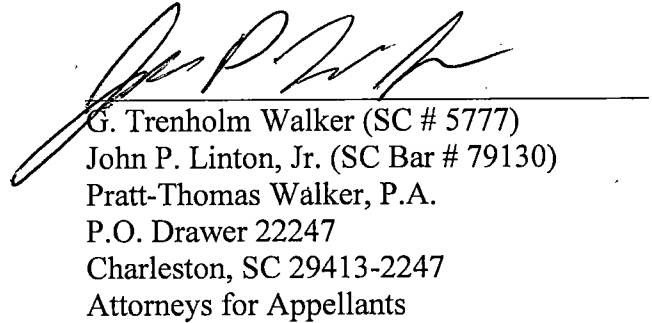 G. Trenholm Walker (SC # 5777)
John P. Linton, Jr. (SC Bar # 79130)
Pratt-Thomas Walker, P.A.
P.O. Drawer 22247
Charleston, SC 29413-2247
Attorneys for Appellants